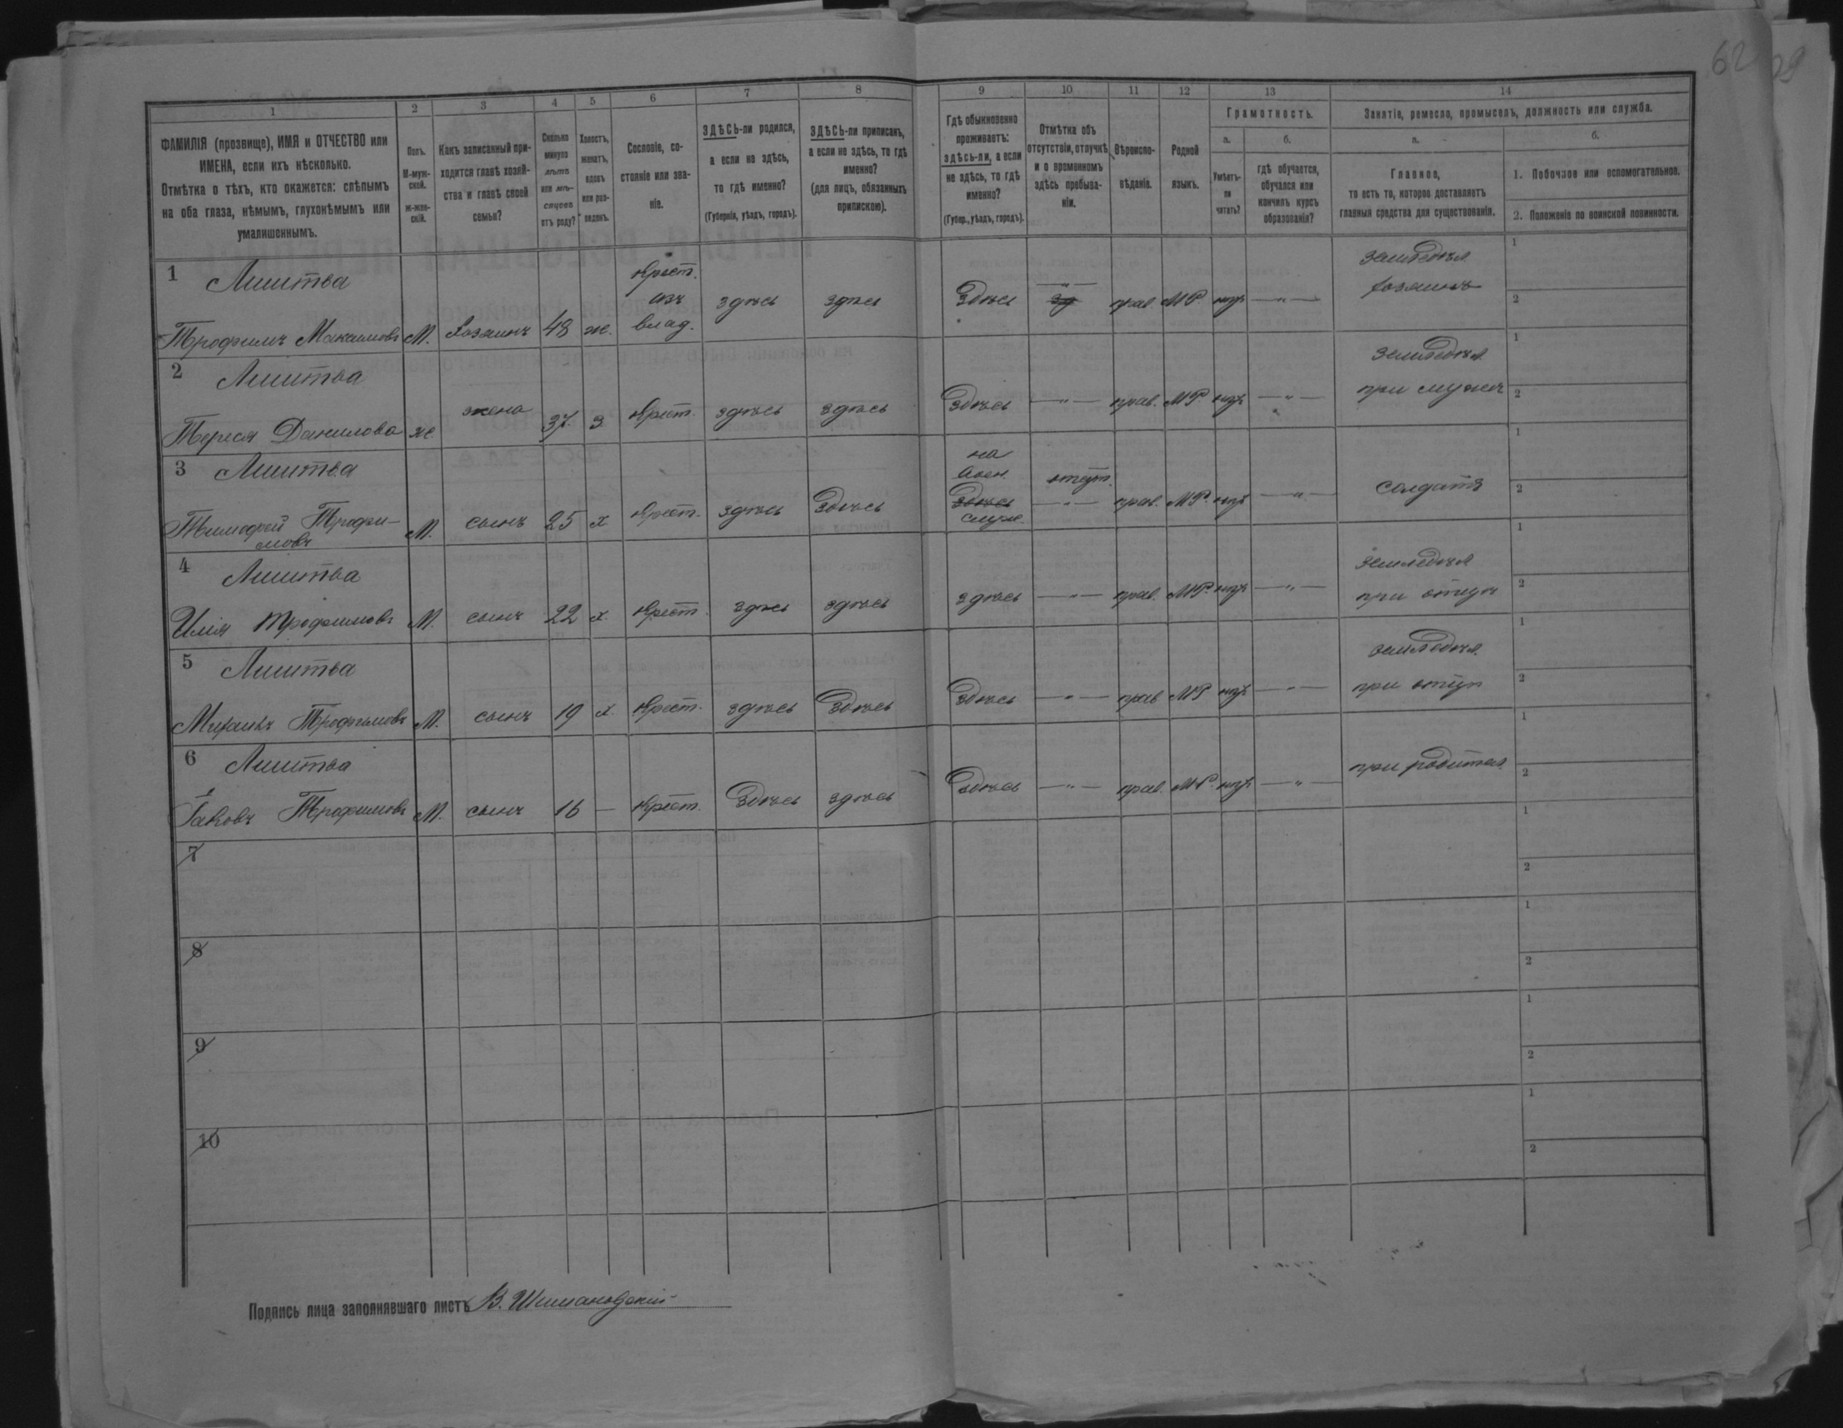 62
1 2 3 4 5 6 7 8 9 10 11 12 13 14
ФАМИЛІЯ (прозвище), ИМЯ и ОТЧЕСТВО или
ИМЕНА, если ихъ нѣсколько.
Отмѣтка о тѣхъ, кто окажется: слѣпымъ
на оба глаза, нѣмымъ, глухонѣмымъ или
умалишеннымъ.
Полъ.
М-муж-
ской.
Ж-жен-
скій.
Какъ записанный при-
ходится главѣ хозяй-
ства и главѣ своей
семьи?
Сколько
минуло
лѣтъ
или мѣ-
сяцевъ
отъ роду?
Холостъ,
женатъ,
вдовъ
или раз-
веденъ.
Сословіе, со-
стояніе или зва-
ніе.
ЗДѢСЬ-ли родился,
а если не здѣсь,
то гдѣ именно?
(Губернія, уѣздъ, городъ).
ЗДѢСЬ-ли приписанъ,
а если не здѣсь, то гдѣ
именно?
(для лицъ, обязанныхъ
припискою).
Гдѣ обыкновенно
проживаетъ:
здѣсь-ли, а если
не здѣсь, то гдѣ
именно?
(Губер., уѣздъ, городъ).
Отмѣтка объ
отсутствіи, отлучкѣ
и о временномъ
здѣсь пребыва-
ніи.
Вѣроиспо-
вѣданіе.
Родной
языкъ.
Грамотность.
а.
Умѣетъ-
ли
читать?
б.
гдѣ обучается,
обучался или
кончилъ курсъ
образованія?
Занятіе, ремесло, промыселъ, должность или служба.
а.
Главное,
то есть то, которое доставляетъ
главныя средства для существованія.
б.
1. Побочное или вспомогательное.
2. Положеніе по воинской повинности.
1 Лиштва
Трофимъ Максимовъ М. Хозяинъ 48 ж. крест. изъ влад. здѣсь здѣсь здѣсь — " — прав. МР нѣтъ — " — земледѣл. хозяинъ 1 2
2 Лиштва
Тереся Данилова ж жена 37. з крест. здѣсь здѣсь здѣсь — " — прав. МР. нѣтъ — " — земледѣл. при мужѣ 1 2
3 Лиштва
Тимофей Трофи-
мовъ М. сынъ 25 х крест. здѣсь здѣсь на воен. здѣсь служ отсут. — " — прав. МР. нѣтъ — " — солдатъ 1 2
4 Лиштва
Илія Трофимовъ М. сынъ 22 х крест. здѣсь здѣсь здѣсь — " — прав. МР. нѣтъ — " — земледѣл. при отцѣ 1 2
5 Лиштва
Михаилъ Трофимовъ М. сынъ 19 х. крест. здѣсь здѣсь здѣсь — " — прав МР нѣтъ — " — земледѣл. при отцѣ 1 2
6 Лиштва
Іаковъ Трофимовъ М. сынъ 16 — крест. здѣсь здѣсь здѣсь — " — прав. МР. нѣтъ — " — при родител. 1 2
7 1 2
8 1 2
9 1 2
10 1 2
Подпись лица заполнявшаго листъ В. Шимановскій